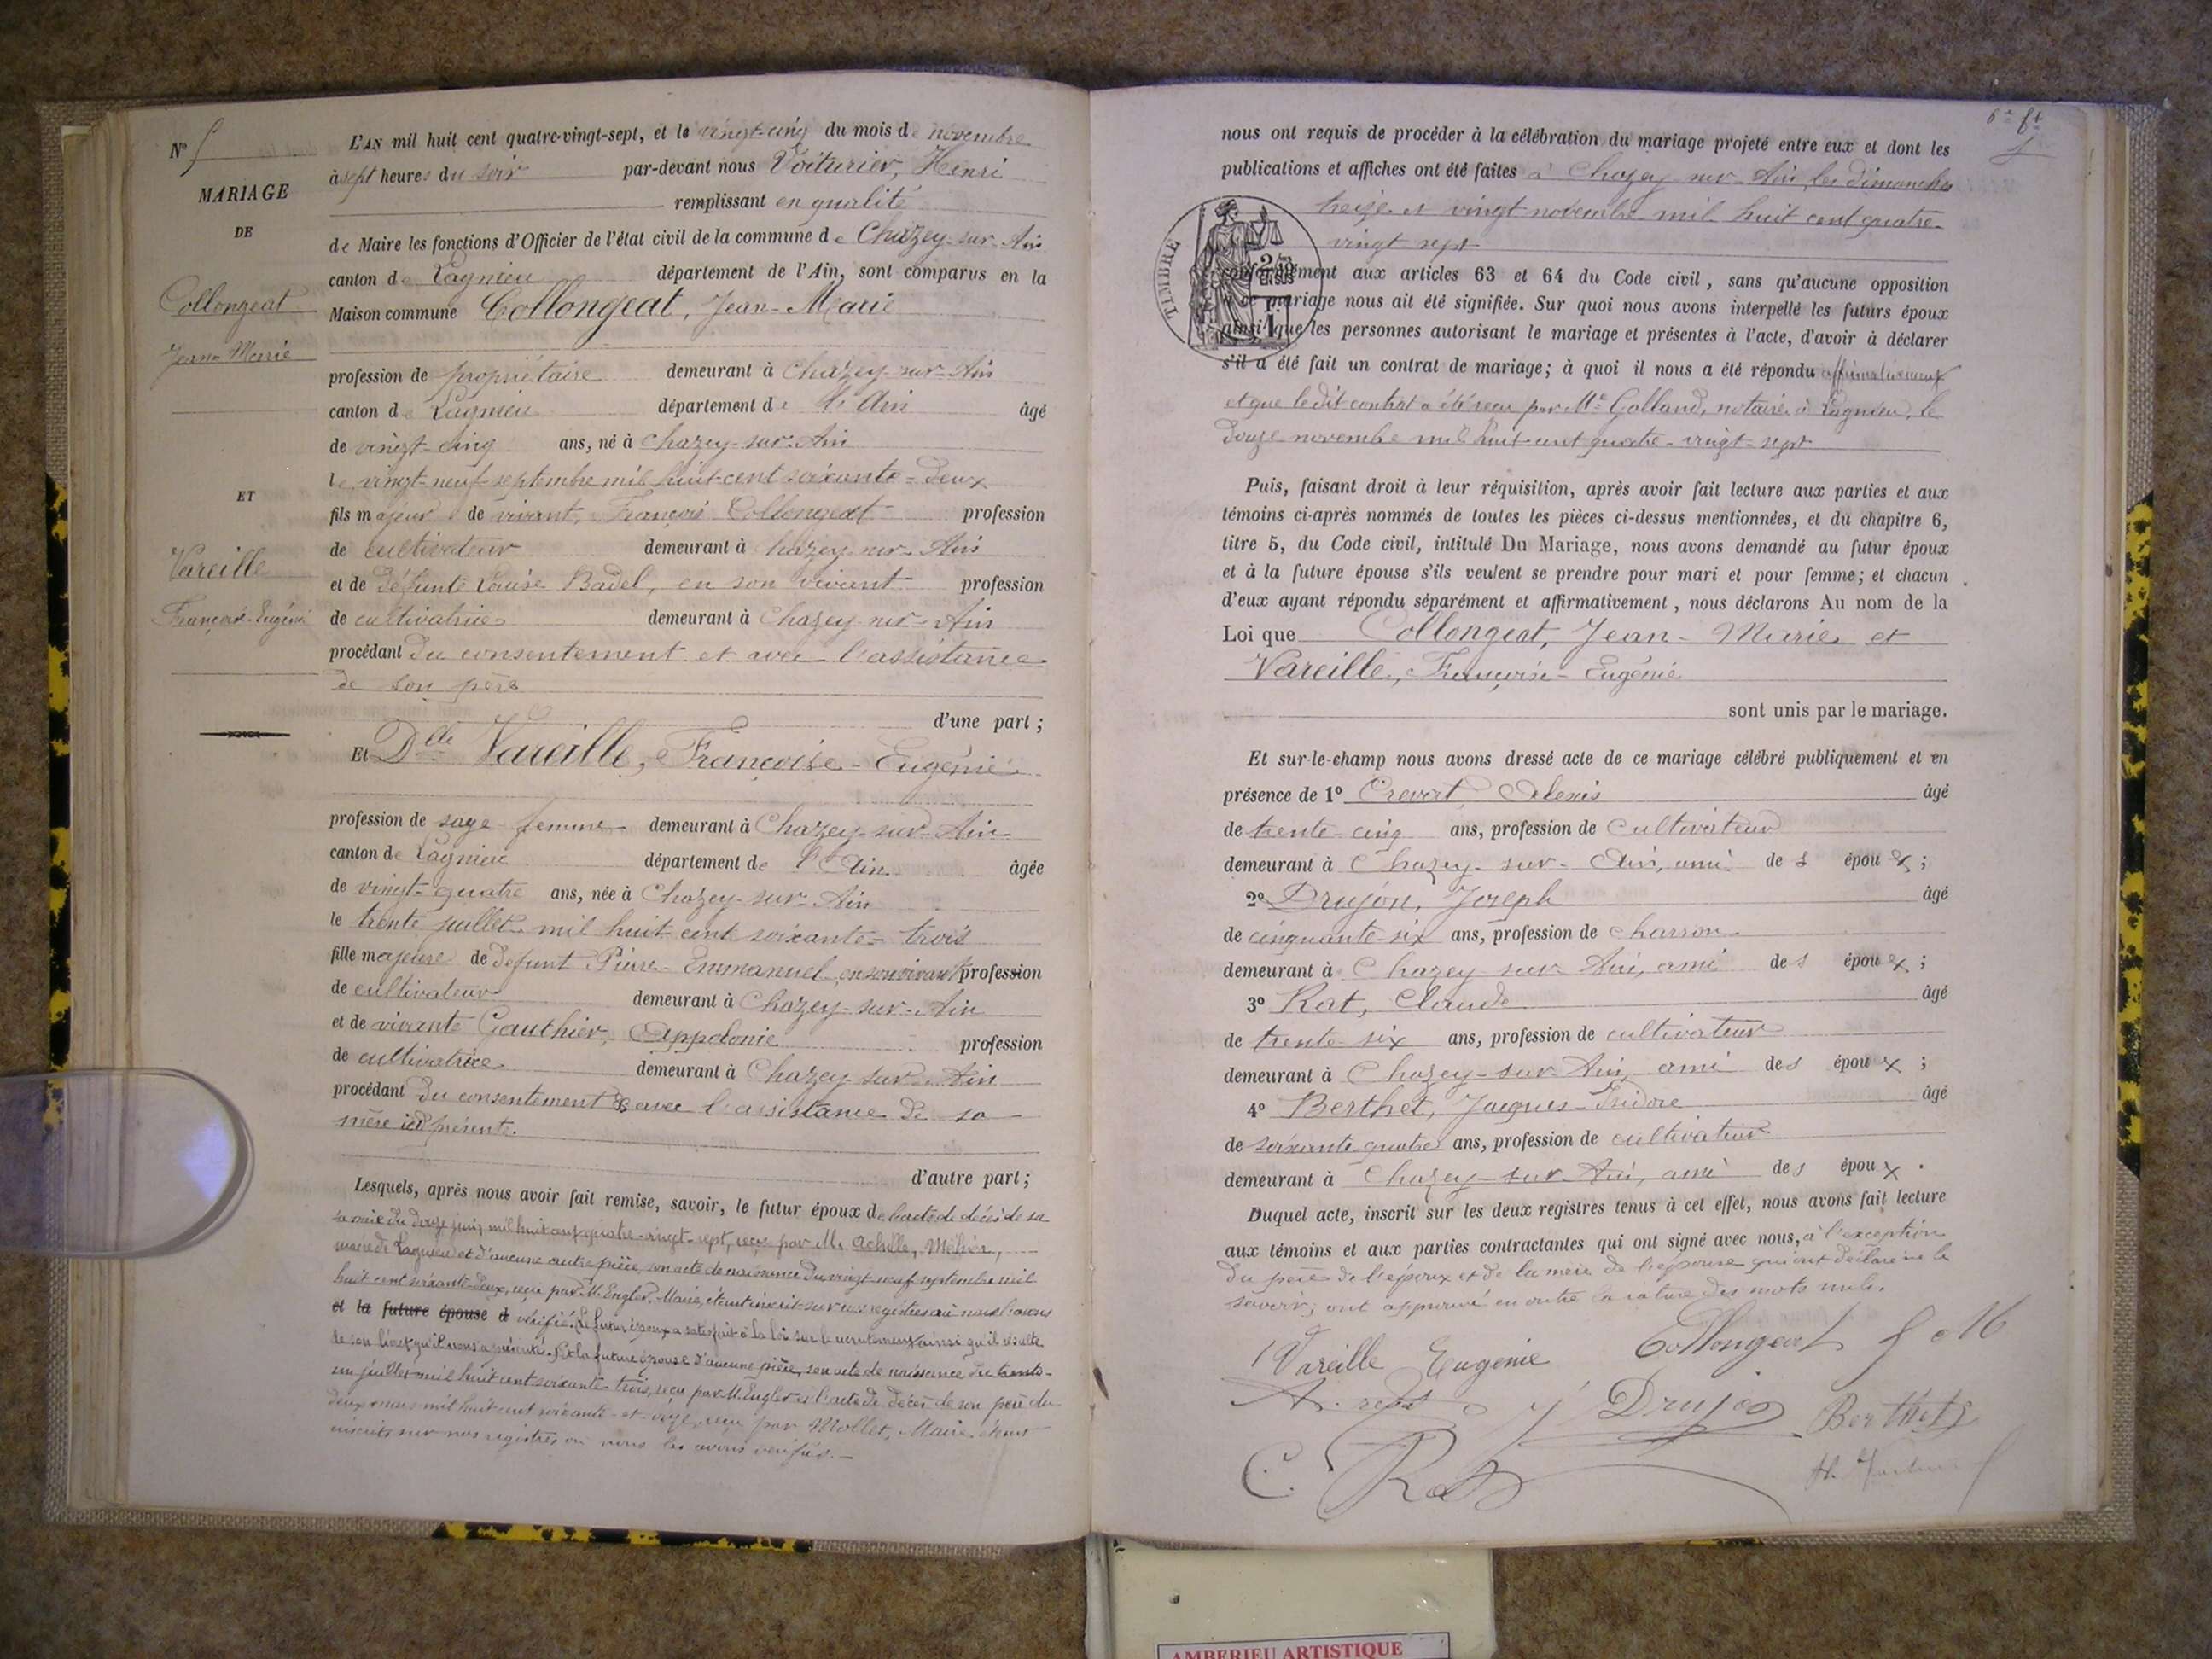 N° 5
MARIAGE
DE
Collongeat
Jean-Marie
ET
Vareille
Françoise-Eugénie
L'AN mil huit cent quatre-vingt-sept, et le vingt-cinq du mois de novembre
à sept heures du soir par-devant nous Voiturier, Henri
remplissant en qualité
de Maire les fonctions d'Officier de l'état civil de la commune de Chazey-sur-Ain
canton de Lagnieu département de l'Ain, sont comparus en la
Maison commune Collongeat, Jean-Marie
profession de propriétaire demeurant à Chazey-sur-Ain
canton de Lagnieu département de l'Ain âgé
de vingt-cinq ans, né à Chazey-sur-Ain
le vingt-neuf septembre mil huit cent soixante-deux
fils majeur de vivant, François Collongeat profession
de cultivateur demeurant à Chazey-sur-Ain
et de défunte Louise Badel, en son vivant profession
de cultivatrice demeurant à Chazey-sur-Ain
procédant du consentement et avec l'assistance
de son père
d'une part ;
Et Dlle Vareille, Françoise-Eugénie
profession de sage femme demeurant à Chazey-sur-Ain
canton de Lagnieu département de l'Ain âgée
de vingt-quatre ans, née à Chazey-sur-Ain
le trente juillet mil huit cent soixante-trois
fille majeure de défunt Pierre-Emmanuel, en son vivant profession
de cultivateur demeurant à Chazey-sur-Ain
et de vivante Gauthier, Appolonie profession
de cultivatrice demeurant à Chazey-sur-Ain
procédant du consentement & avec l'assistance de sa
mère ici présente.
d'autre part ;
Lesquels, après nous avoir fait remise, savoir, le futur époux de l'acte de décès de sa
mère du douze juin mil huit cent quatre-vingt-sept, reçu par Mr Achille, Méhier,
maire de Lagnieu et d'aucune autre pièce, son acte de naissance du vingt-neuf septembre mil
huit cent soixante-deux, reçu par M. Engler, Maire, étant inscrit sur nos registres où nous l'avons
et la future épouse d vérifié. Le futur époux a satisfait à la loi sur le recrutement ainsi qu'il résulte
de son livret qu'il nous a présenté. Et la future épouse d'aucune pièce, son acte de naissance du trente-
un juillet mil huit cent soixante-trois, reçu par M. Engler et l'acte de décès de son père du
deux mars mil huit cent soixante-et-onze, reçu par Mollet, Maire, étant
inscrits sur nos registres où nous les avons vérifiés.
nous ont requis de procéder à la célébration du mariage projeté entre eux et dont les
publications et affiches ont été faites à Chazey-sur-Ain, les dimanches
treize et vingt novembre mil huit cent quatre-
vingt sept
TIMBRE
2/10 EN SUS
conformément aux articles 63 et 64 du Code civil, sans qu'aucune opposition
à ce mariage nous ait été signifiée. Sur quoi nous avons interpellé les futurs époux
ainsi que les personnes autorisant le mariage et présentes à l'acte, d'avoir à déclarer
s'il a été fait un contrat de mariage ; à quoi il nous a été répondu affirmativement
et que le dit contrat a été reçu par Me Galland, notaire à Lagnieu, le
douze novembre mil huit cent quatre-vingt-sept
Puis, faisant droit à leur réquisition, après avoir fait lecture aux parties et aux
témoins ci-après nommés de toutes les pièces ci-dessus mentionnées, et du chapitre 6,
titre 5, du Code civil, intitulé Du Mariage, nous avons demandé au futur époux
et à la future épouse s'ils veulent se prendre pour mari et pour femme ; et chacun
d'eux ayant répondu séparément et affirmativement, nous déclarons Au nom de la
Loi que Collongeat, Jean-Marie et
Vareille, Françoise-Eugénie
sont unis par le mariage.
Et sur-le-champ nous avons dressé acte de ce mariage célébré publiquement et en
présence de 1° Crevat Alexis âgé
de trente-cinq ans, profession de cultivateur
demeurant à Chazey-sur-Ain, ami de s époux ;
2° Drujon, Joseph âgé
de cinquante-six ans, profession de charron
demeurant à Chazey-sur-Ain, ami des époux ;
3° Rat, Claude âgé
de trente-six ans, profession de cultivateur
demeurant à Chazey-sur-Ain, ami des époux ;
4° Berthet, Jacques-Isidore âgé
de soixante-quatre ans, profession de cultivateur
demeurant à Chazey-sur-Ain, ami des époux.
Duquel acte, inscrit sur les deux registres tenus à cet effet, nous avons fait lecture
aux témoins et aux parties contractantes qui ont signé avec nous, à l'exception
du père de l'époux et de la mère de l'épouse qui ont déclaré ne le
savoir ; ont approuvé en outre la rature des mots nuls.
Vareille Eugénie Collongeat J M
J Drujon Berthet J
C. Rat
AMBERIEU ARTISTIQUE